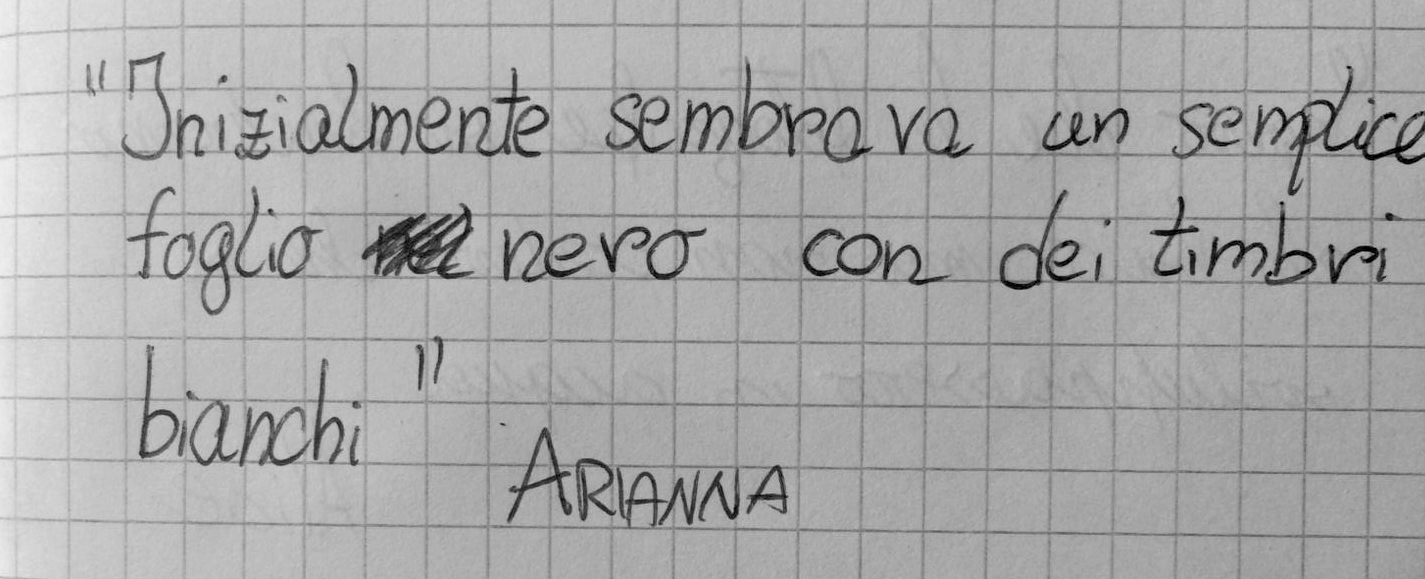 "Inizialmente sembrava un semplice
foglio nero con dei timbri
bianchi"
ARIANNA